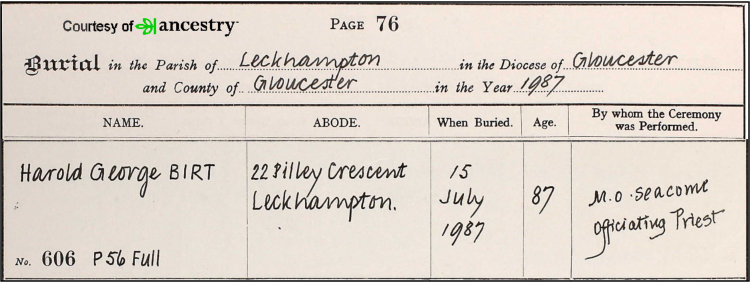 Courtesy of ancestry
PAGE 76
Burial in the Parish of Leckhampton in the Diocese of Gloucester
and County of Gloucester in the Year 1987
NAME. ABODE. When Buried. Age. By whom the Ceremony was Performed.
Harold George BIRT 22 Pilley Crescent 15
Leckhampton. July 87 M.O. Seacome
1987 Officiating Priest
No. 606 P56 Full